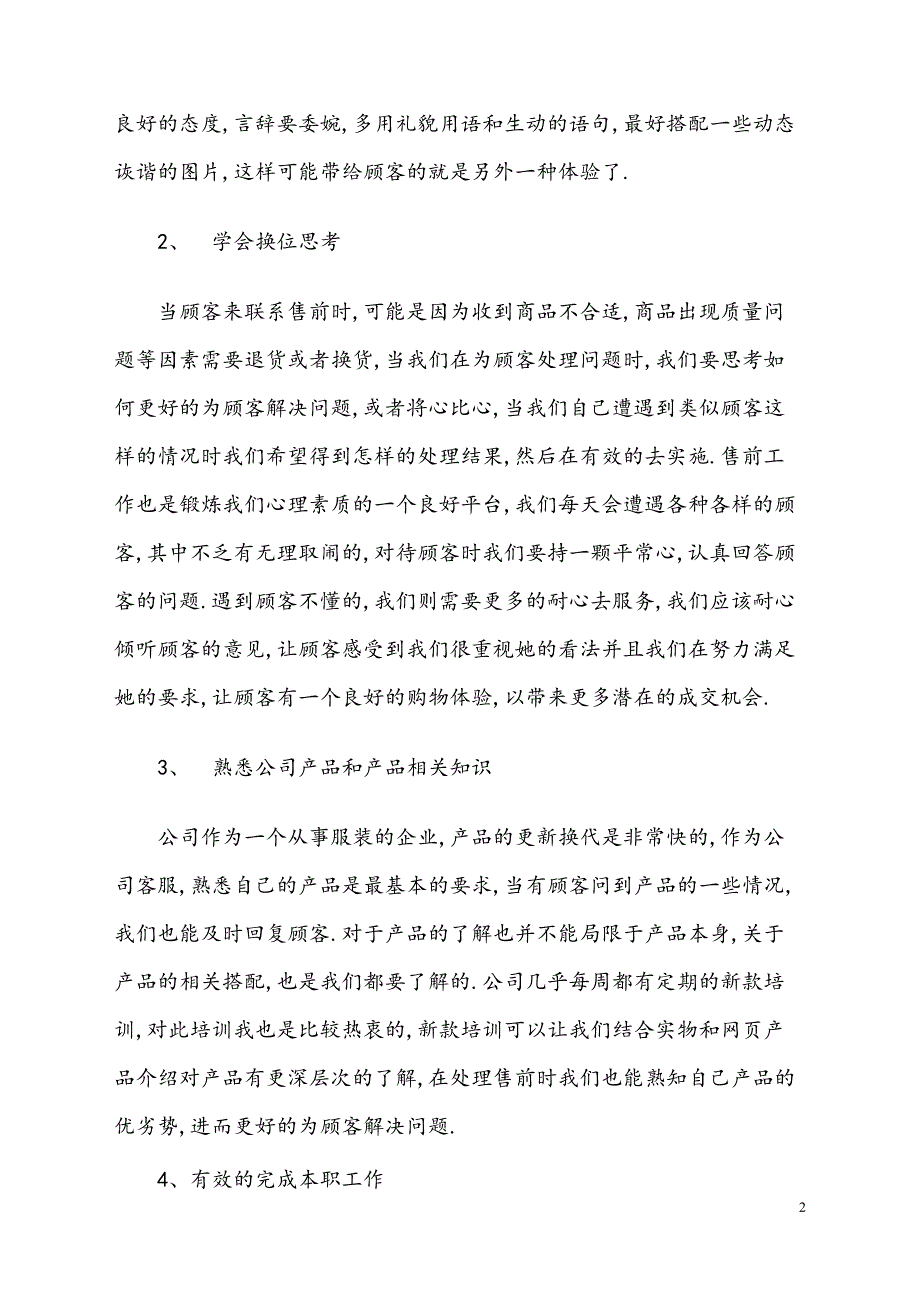 良好的态度,言辞要委婉,多用礼貌用语和生动的语句,最好搭配一些动态
诙谐的图片,这样可能带给顾客的就是另外一种体验了.
2、 学会换位思考
当顾客来联系售前时,可能是因为收到商品不合适,商品出现质量问
题等因素需要退货或者换货,当我们在为顾客处理问题时,我们要思考如
何更好的为顾客解决问题,或者将心比心,当我们自己遭遇到类似顾客这
样的情况时我们希望得到怎样的处理结果,然后在有效的去实施.售前工
作也是锻炼我们心理素质的一个良好平台,我们每天会遭遇各种各样的顾
客,其中不乏有无理取闹的,对待顾客时我们要持一颗平常心,认真回答顾
客的问题.遇到顾客不懂的,我们则需要更多的耐心去服务,我们应该耐心
倾听顾客的意见,让顾客感受到我们很重视她的看法并且我们在努力满足
她的要求,让顾客有一个良好的购物体验,以带来更多潜在的成交机会.
3、 熟悉公司产品和产品相关知识
公司作为一个从事服装的企业,产品的更新换代是非常快的,作为公
司客服,熟悉自己的产品是最基本的要求,当有顾客问到产品的一些情况,
我们也能及时回复顾客.对于产品的了解也并不能局限于产品本身,关于
产品的相关搭配,也是我们都要了解的.公司几乎每周都有定期的新款培
训,对此培训我也是比较热衷的,新款培训可以让我们结合实物和网页产
品介绍对产品有更深层次的了解,在处理售前时我们也能熟知自己产品的
优劣势,进而更好的为顾客解决问题.
4、有效的完成本职工作
2